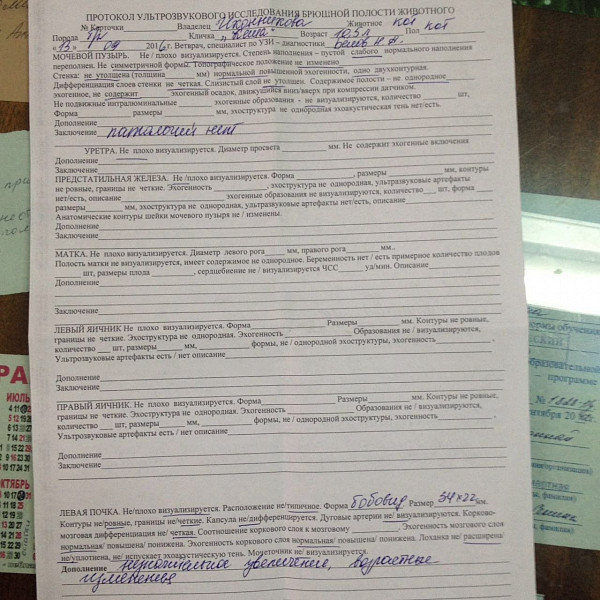 ПРОТОКОЛ УЛЬТРОЗВУКОВОГО ИССЛЕДОВАНИЯ БРЮШНОЙ ПОЛОСТИ ЖИВОТНОГО
№ Карточки Владелец Иконникова Животное кот
Порода Кличка "Кеша" Возраст 10,5 л Пол кот
« 13 » 09 2016г. Ветврач, специалист по УЗИ – диагностики Белов
МОЧЕВОЙ ПУЗЫРЬ. Не / плохо визуализируется. Степень наполнения – пустой слабого нормального наполнения
переполнен. Не симметричной форма. Топографическое положение не изменено
Стенка: не утолщена (толщина мм) нормальной повышенной эхогенности, одно двухконтурная.
Дифференциация слоев стенки не четкая. Слизистый слой не утолщен. Содержимое полости – не однородное,
эхогенное, не содержит эхогенный осадок, движущийся вниз/вверх при компрессии датчиком.
Не подвижные интралюминальные эхогенные образования - не визуализируются, количество шт,
Форма размеры мм, эхоструктура не однородная эхоакустическая тень нет/есть.
Дополнение
Заключение патологий нет
УРЕТРА. Не плохо визуализируется. Диаметр просвета мм. Не содержит эхогенные включения
Дополнение
Заключение
ПРЕДСТАТИЛЬНАЯ ЖЕЛЕЗА. Не /плохо визуализируется. Форма , размеры мм, контуры
не ровные, границы не четкие. Эхогенность , эхоструктура не однородная, ультразвуковые артефакты
нет/есть, описание эхогенные образования не визуализируются, количество шт, форма
размеры мм, эхоструктура не однородная, ультразвуковые артефакты нет/есть, описание
Анатомические контуры шейки мочевого пузыря не / изменены.
Дополнение
Заключение
МАТКА. Не плохо визуализируется. Диаметр левого рога мм, правого рога мм..
Полость матки не визуализируется, имеет содержимое не однородное. Беременность нет / есть примерное количество плодов
шт, размеры плода , сердцебиение не / визуализируется ЧСС уд/мин. Описание
Дополнение
Заключение
ЛЕВЫЙ ЯИЧНИК. Не плохо визуализируется. Форма Размеры мм. Контуры не ровные,
границы не четкие. Эхоструктура не однородная. Эхогенность Образования не / визуализируются,
количество шт, размеры мм, формы, не / однородной эхоструктуры, эхогенность .
Ультразвуковые артефакты есть / нет описание
Дополнение
Заключение
ПРАВЫЙ ЯИЧНИК. Не плохо визуализируется. Форма Размеры мм. Контуры не ровные,
границы не четкие. Эхоструктура не однородная. Эхогенность Образования не / визуализируются,
количество шт, размеры мм, формы, не / однородной эхоструктуры, эхогенность .
Ультразвуковые артефакты есть / нет описание
Дополнение
Заключение
ЛЕВАЯ ПОЧКА. Не/плохо визуализируется. Расположение не/типичное. Форма бобовид Размер 34×22 мм.
Контуры не/ровные, границы не/четкие. Капсула не/дифференцируется. Дуговые артерии не/ визуализируются. Корково-
мозговая дифференциация не/ четкая. Соотношение коркового слоя к мозговому . Эхогенность мозгового слоя
нормальная/ повышена/ понижена. Эхогенность коркового слоя нормальная/ повышена/ понижена. Лоханка не/ расширена
не/уплотнена, не/ испускает эхоакустическую тень. Мочеточник не/ визуализируется.
Дополнение незначительное увеличение, возрастные
изменения
РА
ИЮЛЬ
ОКТЯБРЬ